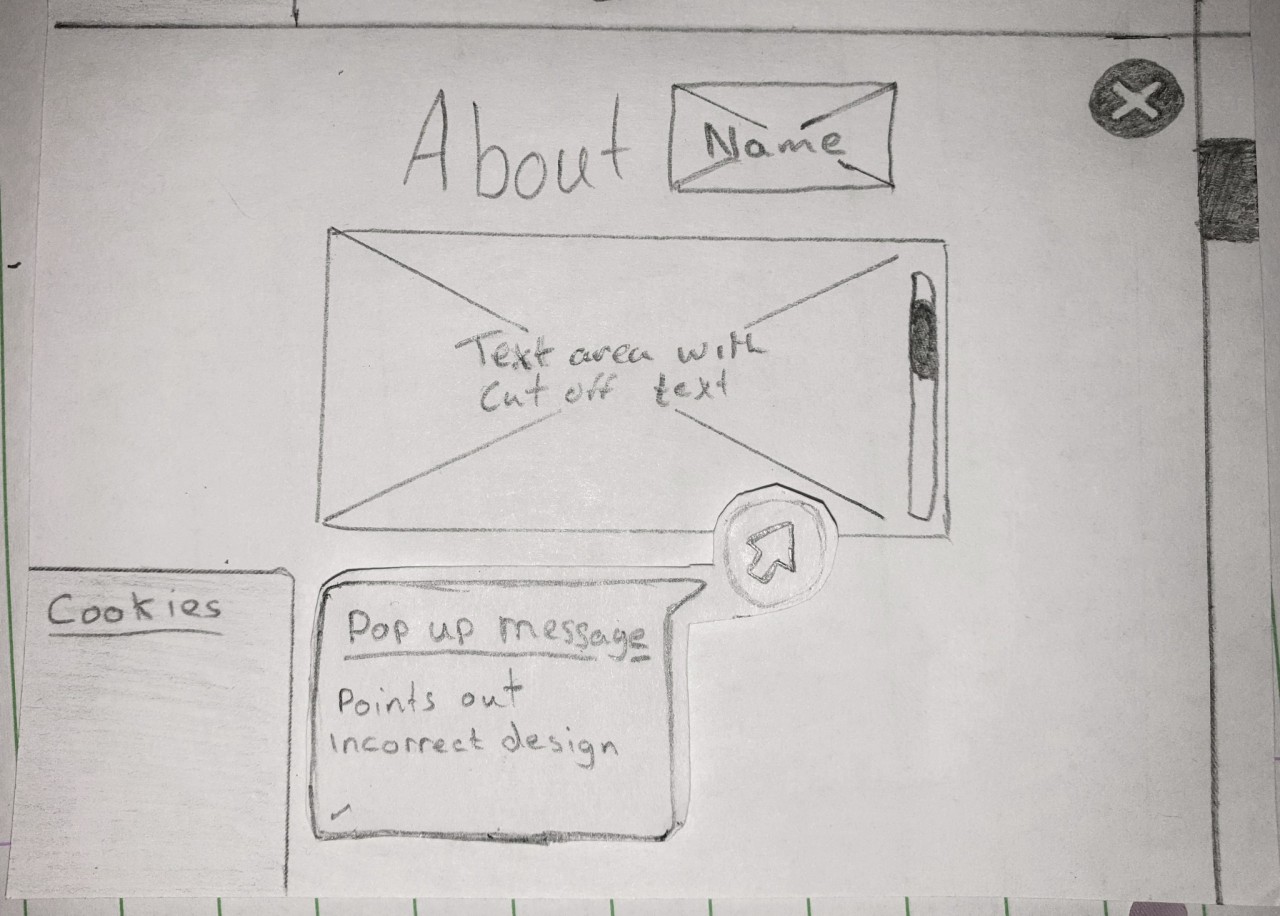 About Name
Text area with
Cut off text
Cookies
Pop up message
Points out
incorrect design